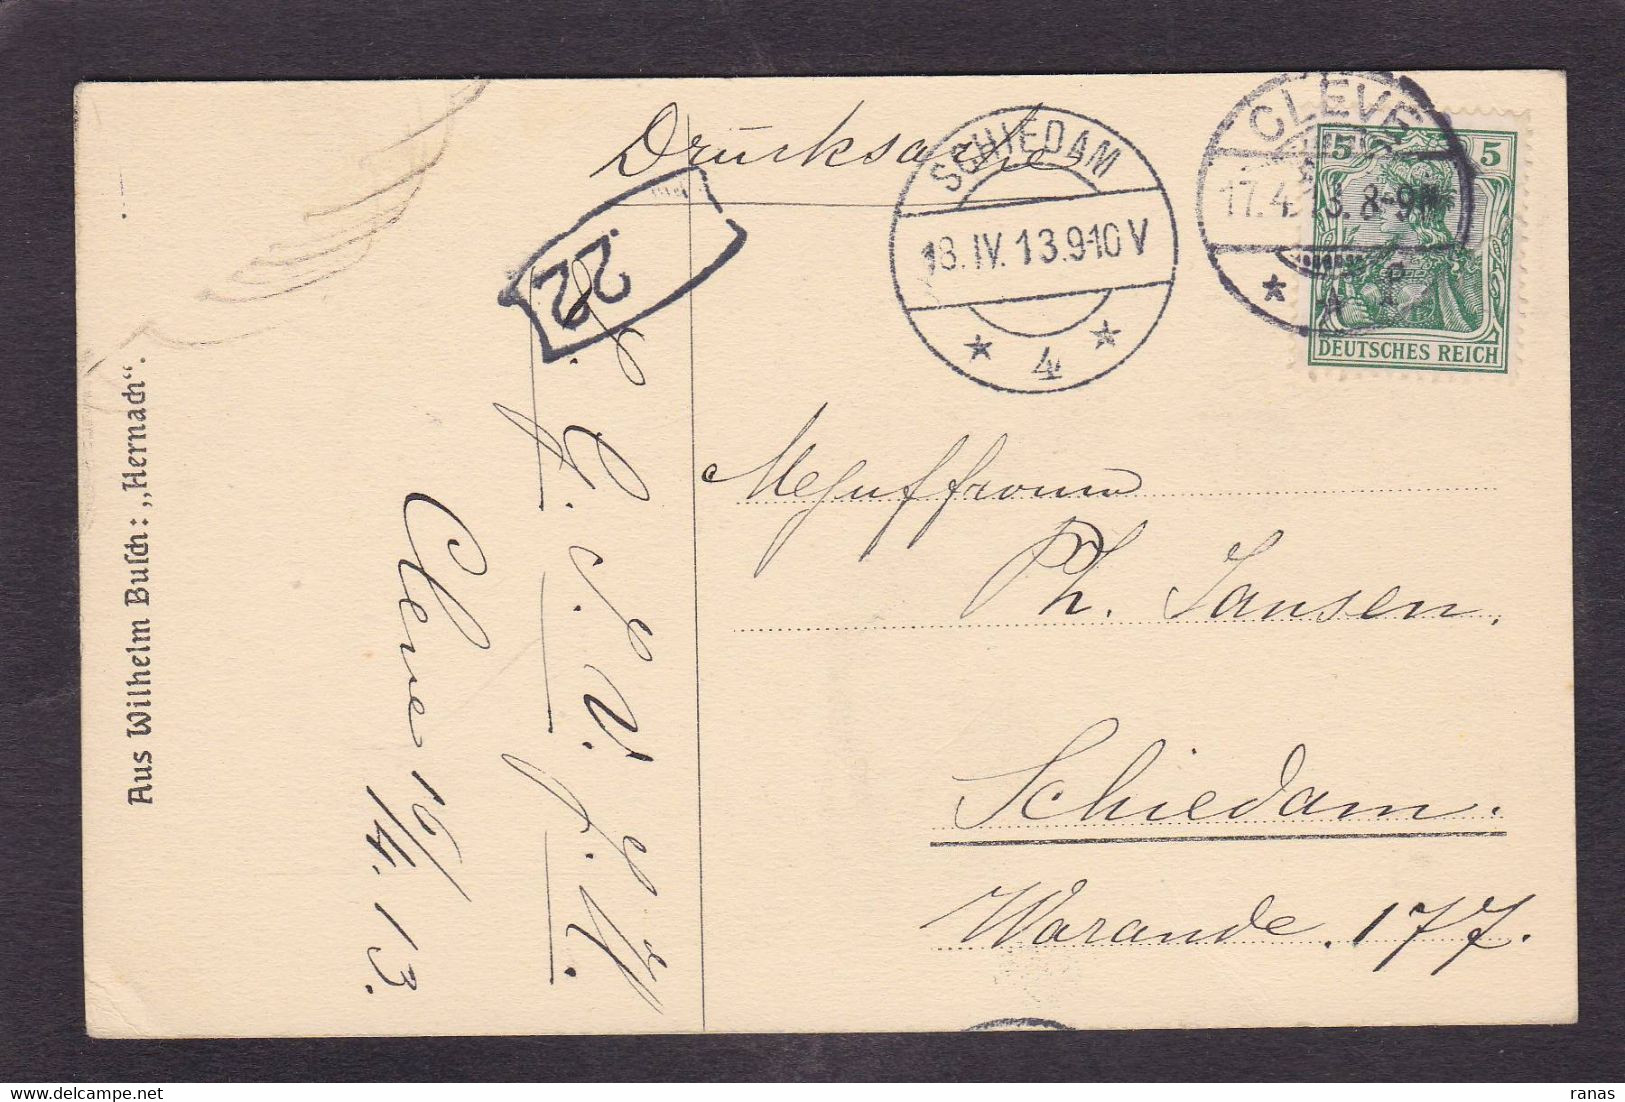 Drucksache
SCHIEDAM
18.IV.13.9-10V
4
CLEVE
17.4.13.8-9N
5 5
DEUTSCHES REICH
22
Mejuffrouw
Ph. Jansen,
Schiedam.
Warande. 177.
Cleve 16/4. 13.
Aus Wilhelm Busch: „Hernach“.
ranas